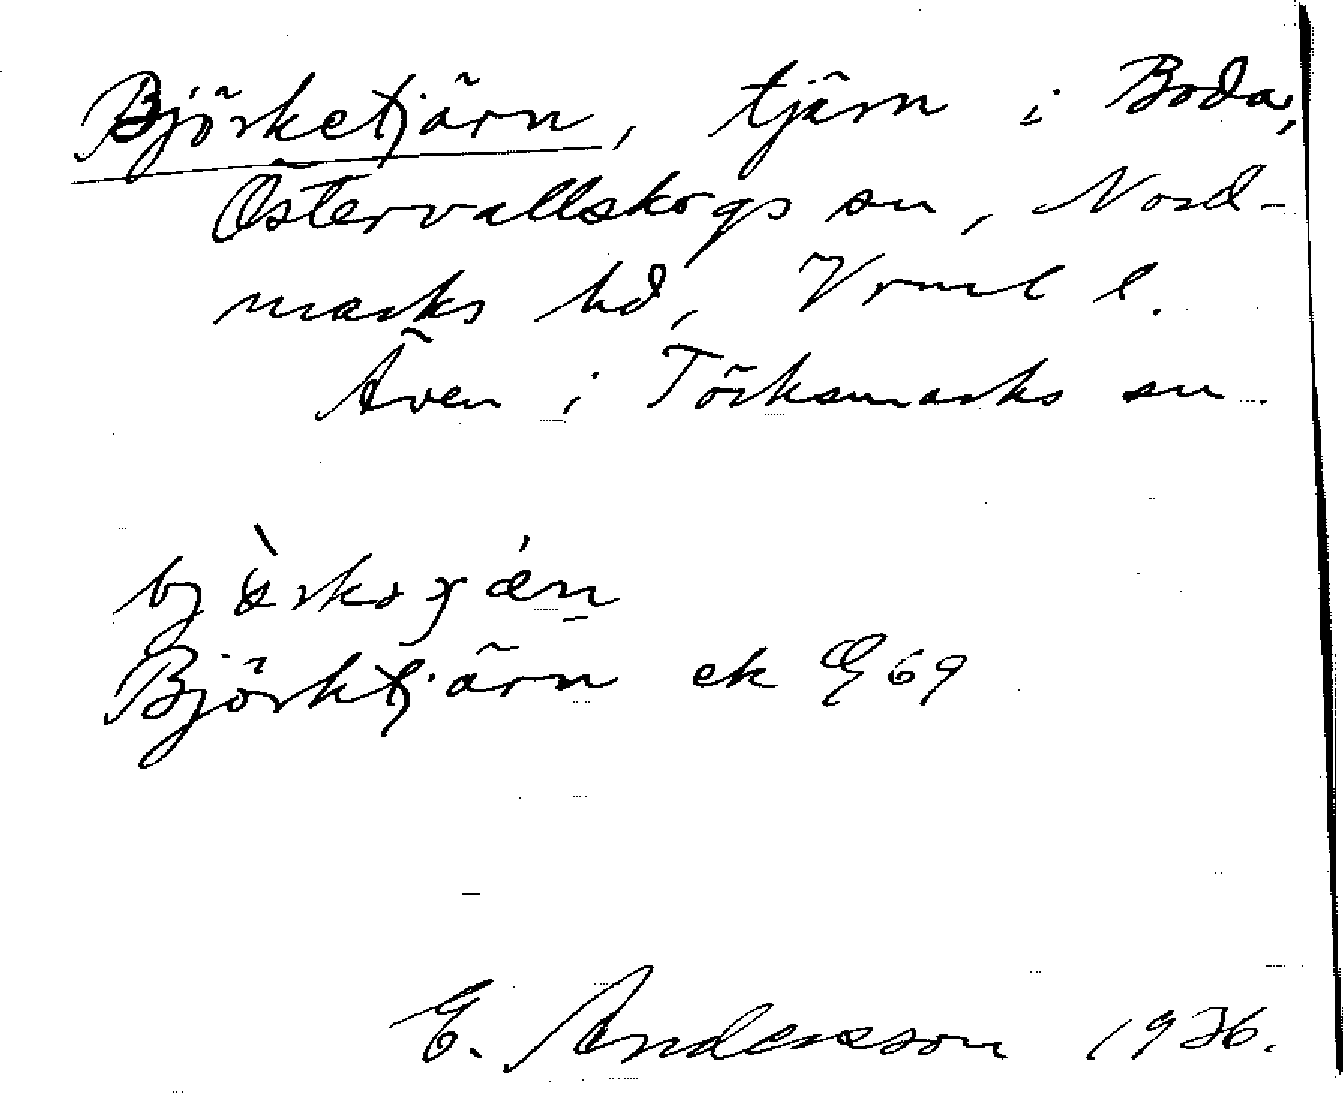 Björketjärn, tjärn i Boda,
Östervallskogs sn, Nord-
marks hd, Vrml l.
Även i Töcksmarks sn.
Björktjärn ek Œ 69
E. Andersson 1936.